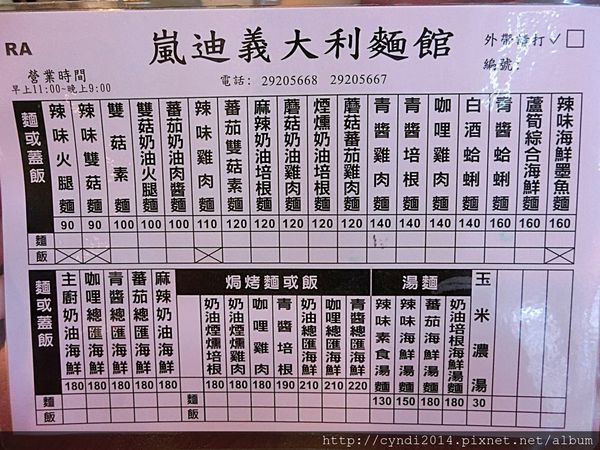 RA
嵐迪義大利麵館
外帶請打✓□
編號:
營業時間
早上11:00~晚上9:00
電話: 29205668 29205667
麵或蓋飯
辣味火腿麵 90
辣味雙菇麵 90
雙菇素麵 100
雙菇奶油火腿麵 100
蕃茄奶油肉醬麵 100
辣味雞肉麵 110
蕃茄雙菇素麵 120
麻辣奶油培根麵 120
蘑菇奶油雞肉麵 120
煙燻奶油培根麵 120
蘑菇蕃茄雞肉麵 120
青醬雞肉麵 140
青醬培根麵 140
咖哩雞肉麵 140
白酒蛤蜊麵 160
青醬蛤蜊麵 160
蘆筍綜合海鮮麵 160
辣味海鮮墨魚麵 160
麵
飯
麵或蓋飯
主廚奶油海鮮 180
咖哩總匯海鮮 180
青醬總匯海鮮 180
蕃茄總匯海鮮 180
麻辣奶油海鮮 180
焗烤麵或飯
奶油煙燻培根 180
奶油煙燻雞肉 180
咖哩雞肉 180
青醬培根 190
奶油總匯海鮮 210
咖哩總匯海鮮 210
青醬總匯海鮮 220
湯麵
辣味素食湯麵 130
辣味海鮮湯麵 150
蕃茄海鮮湯麵 180
奶油培根海鮮湯麵 180
玉米濃湯 30
麵
飯
麵
飯
http://cyndi2014.pixnet.net/album